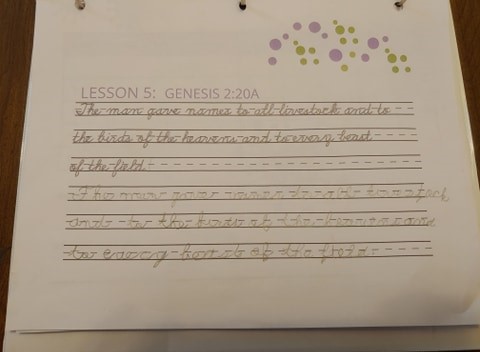 LESSON 5: GENESIS 2:20A
The man gave names to all livestock and to
the birds of the heavens and to every beast
of the field.
The man gave names to all livestock
and to the birds of the heavens and
to every beast of the field.